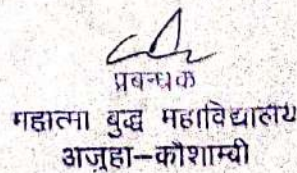 प्रबन्धक
महात्मा बुद्ध महाविद्यालय
अजुहा-कौशाम्बी